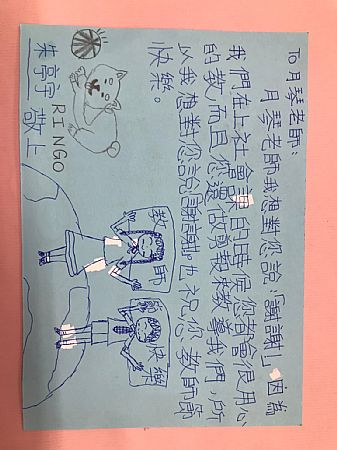 To 月琴老師：
月琴老師我想對您說：「謝謝！」因為
我們在上社會課的時候您都會很用心
的教，而且您還做來教導我們，所
以我想對您說謝謝也祝您教師節
快樂。
教師
快樂
RINGO
朱亭宇 敬上